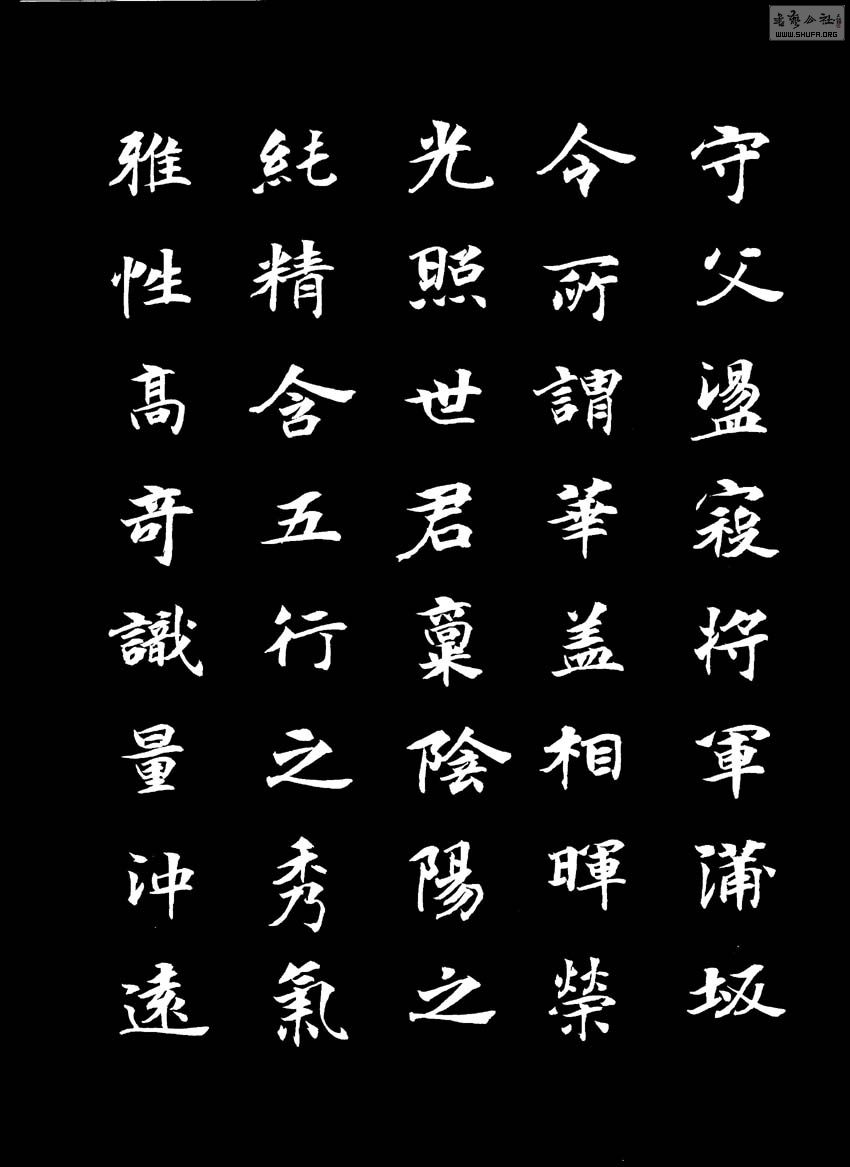 守父盪寇将軍蒲坂
令所謂華盖相暉榮
光照世君稟陰陽之
純精含五行之秀氣
雅性高奇識量沖遠
WWW.SHUFA.ORG